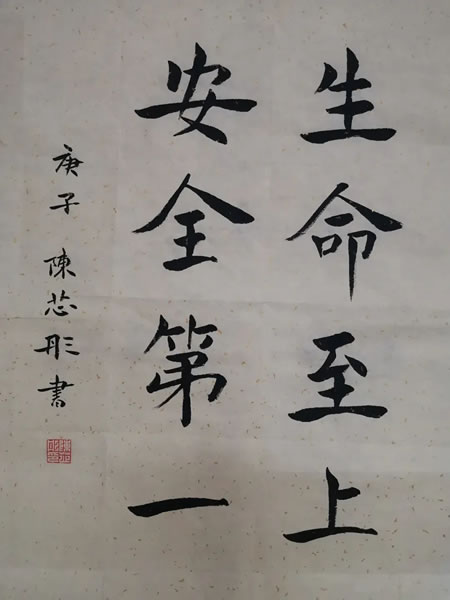 生命至上
安全第一
庚子 陳芯彤書